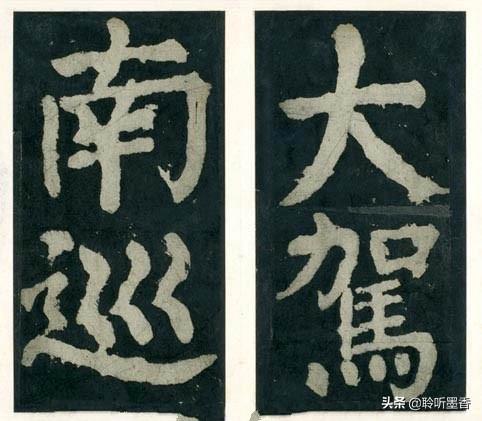 大駕
南巡
头条 @聆听墨香